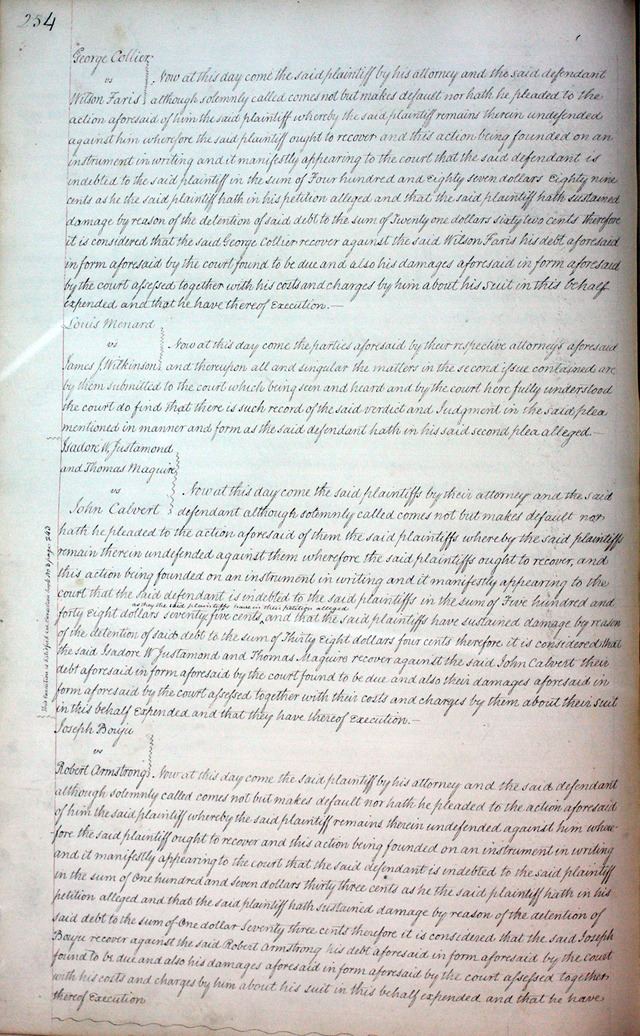 254
George Collier
vs
Now at this day come the said plaintiff by his attorney and the said defendant
Wilson Faris although solemnly called comes not but makes default nor hath he pleaded to the
action aforesaid of him the said plaintiff whereby the said plaintiff remains therein undefended
against him wherefore the said plaintiff ought to recover and this action being founded on an
instrument in writing and it manifestly appearing to the court that the said defendant is
indebted to the said plaintiff in the sum of Four hundred and Eighty seven dollars Eighty nine
cents as he the said plaintiff hath in his petition alleged and that the said plaintiff hath sustained
damage by reason of the detention of said debt to the sum of Twenty one dollars sixty two cents therefore
it is considered that the said George Collier recover against the said Wilson Faris his debt aforesaid
in form aforesaid by the court found to be due and also his damages aforesaid in form aforesaid
by the court assessed together with his costs and charges by him about his suit in this behalf
Expended and that he have thereof Execution.—
Louis Menard
vs
Now at this day come the parties aforesaid by their respective attorneys aforesaid
James J. Wilkinson and thereupon all and singular the matters in the second issue contained are
by them submitted to the court which being seen and heard and by the court here fully understood
the court do find that there is such record of the said verdict and Judgment in the said plea
mentioned in manner and form as the said defendant hath in his said second plea alleged.—
Isadore W. Justamond
and Thomas Maguire
vs
Now at this day come the said plaintiffs by their attorney and the said
John Calvert defendant although solemnly called comes not but makes default nor
hath he pleaded to the action aforesaid of them the said plaintiffs whereby the said plaintiffs
remain therein undefended against them wherefore the said plaintiffs ought to recover, and
this action being founded on an instrument in writing and it manifestly appearing to the
court that the said defendant is indebted to the said plaintiffs in the sum of Five hundred and
as they the said plaintiffs have in their petition alleged
forty Eight dollars seventy five cents and that the said plaintiffs have sustained damage by reason
of the detention of said debt to the sum of Thirty Eight dollars four cents therefore it is considered that
the said Isadore W Justamond and Thomas Maguire recover against the said John Calvert their
debt aforesaid in form aforesaid by the court found to be due and also their damages aforesaid in
form aforesaid by the court assessed together with their costs and charges by them about their suit
in this behalf Expended and that they have thereof Execution.—
Joseph Bouju
vs
Robert Armstrong Now at this day come the said plaintiff by his attorney and the said defendant
although solemnly called comes not but makes default nor hath he pleaded to the action aforesaid
of him the said plaintiff whereby the said plaintiff remains therein undefended against him where-
fore the said plaintiff ought to recover and this action being founded on an instrument in writing
and it manifestly appearing to the court that the said defendant is indebted to the said plaintiff
in the sum of One hundred and seven dollars thirty three cents as he the said plaintiff hath in his
petition alleged and that the said plaintiff hath sustained damage by reason of the detention of
said debt to the sum of One dollar Seventy three cents therefore it is considered that the said Joseph
Bouju recover against the said Robert Armstrong his debt aforesaid in form aforesaid by the court
found to be due and also his damages aforesaid in form aforesaid by the court assessed together
with his costs and charges by him about his suit in this behalf expended and that he have
thereof Execution